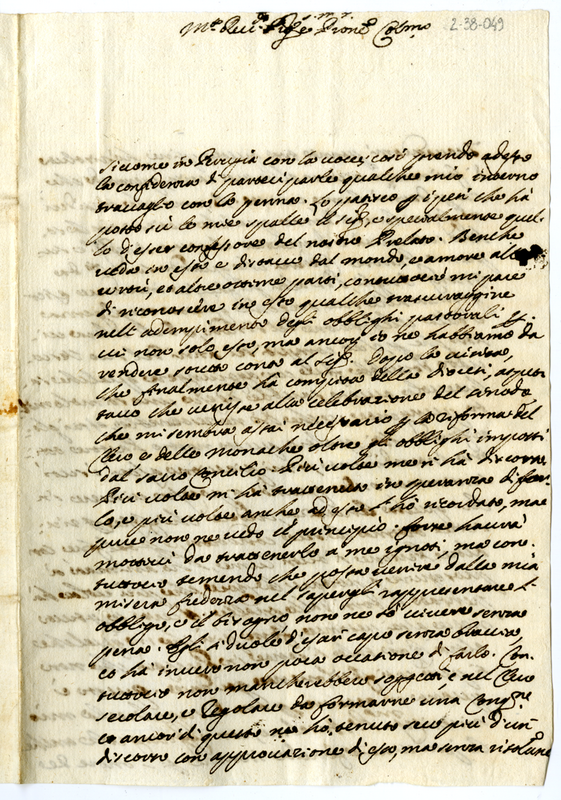 2-38-049
Siccome in Perugia con la voce, così prendo adesso
la confidenza di parteciparle qualche mio interno
travaglio con la penna. Lo patisco p i pesi che hà
posto sù le mie spalle il Sig.e, e specialmente quel-
lo d'esser confessore del nostro Prelato. Benche
veda in esso e distacco dal mondo, e amore alle
virtù, et altre ottime parti, contuttociò mi pare
di riconoscere in esso qualche trascuraggine
nell'adempimento degli obblighi pastorali
cui non solo esso, ma ancor io ne habbiamo da
rendere stretto conto al Sig.e Dopo la visita,
che finalmente ha compita della Diocesi, aspet-
tavo che venisse alla celebrazione del sinodo,
che mi sembra assai necessario p la riforma del
Clero e delle monache oltre gli obblighi imposti
dal sacro Concilio. Più volte me n'hà discorso
Più volte mi hà trattenuto in speranza di far-
lo, e più volte anche ad esso l'hò ricordato, ma
pure non ne vedo il principio: forse haverà
motivi da trattenerlo a me ignoti, ma con-
tuttociò temendo che possa venire dalla mia
misera freddezza nel sapergli rappresentare l'
obbligo, e il bisogno, non ne sò vivere senza
pena. Egli si duole d'essere capo senza braccia,
et hà in vero non poca occasione di farlo. Con-
tuttociò non mancherebbero soggetti, e nel Clero
secolare, e Regolare da formarne una Cong.ne
et ancor di questo ne hò tenuto seco più d'un
discorso con approvazione di esso, ma senza risoluz.ne